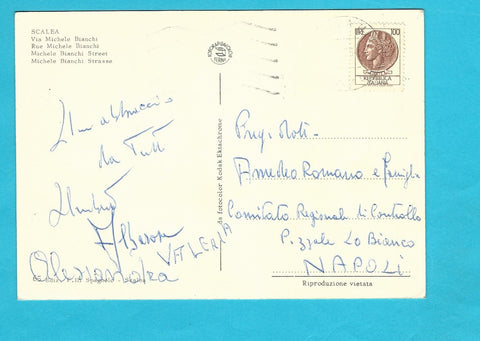 SCALEA
Via Michele Bianchi
Rue Michele Bianchi
Michele Bianchi Street
Michele Bianchi Strasse
Un abbraccio
da Tutti
Umberto
VALERIA
Alessandra
da fotocolor Kodak Ektachrome
100
REPUBBLICA
ITALIANA
Preg. Dott.
Amedeo Romano e famiglia
Comitato Regionale di Controllo
P.zzale Lo Bianco
NAPOLI
Riproduzione vietata